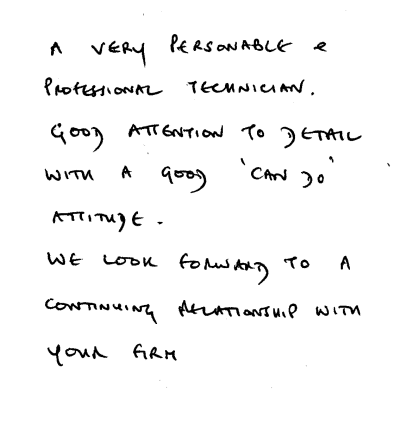 A VERY PERSONABLE &
PROFESSIONAL TECHNICIAN.
GOOD ATTENTION TO DETAIL
WITH A GOOD 'CAN DO'
ATTITUDE.
WE LOOK FORWARD TO A
CONTINUING RELATIONSHIP WITH
YOUR FIRM